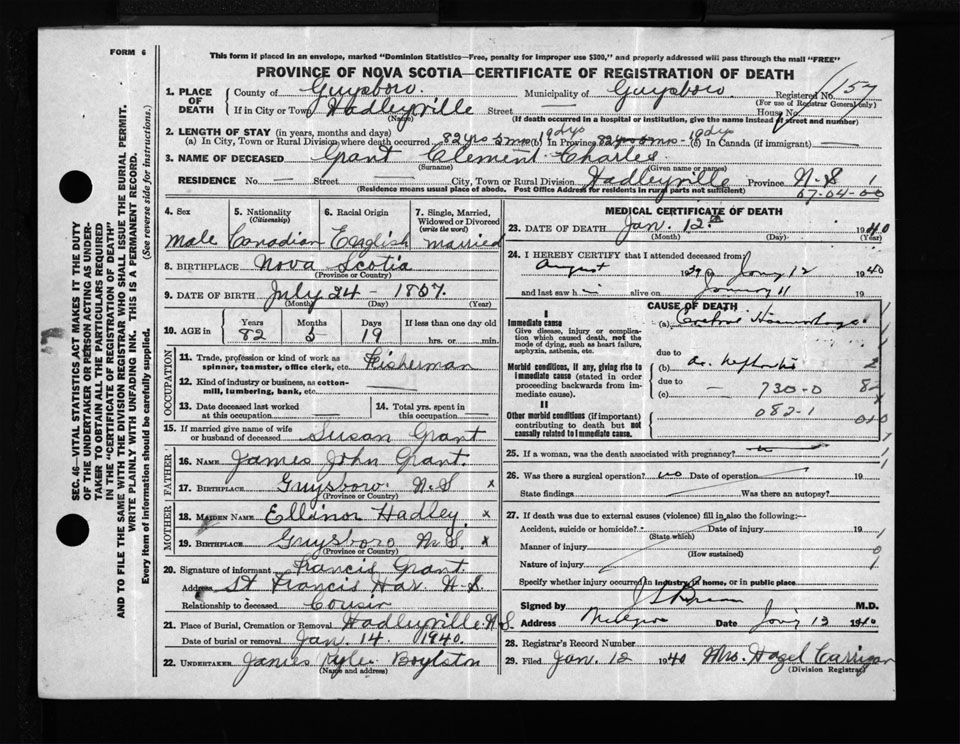 FORM 6
This form if placed in an envelope, marked "Dominion Statistics—Free, penalty for improper use $300," and properly addressed will pass through the mail "FREE"
PROVINCE OF NOVA SCOTIA—CERTIFICATE OF REGISTRATION OF DEATH
SEC. 46—VITAL STATISTICS ACT MAKES IT THE DUTY
OF THE UNDERTAKER OR PERSON ACTING AS UNDER-
TAKER TO OBTAIN ALL THE PARTICULARS REQUIRED
IN THE "CERTIFICATE OF REGISTRATION OF DEATH"
AND TO FILE THE SAME WITH THE DIVISION REGISTRAR WHO SHALL ISSUE THE BURIAL PERMIT.
WRITE PLAINLY WITH UNFADING INK. THIS IS A PERMANENT RECORD.
Every item of information should be carefully supplied. (See reverse side for instructions.)
1. PLACE OF DEATH
County of Guysboro. Municipality of Guysboro. Registered No. 157
(For use of Registrar General only)
If in City or Town Hadleyville Street — House No.
(Name) (If death occurred in a hospital or institution, give the name instead of street and number)
2. LENGTH OF STAY (in years, months and days)
(a) In City, Town or Rural Division where death occurred 82 yrs 5 mos 19 dys (b) In Province 82 yrs 5 mos 19 dys (c) In Canada (if immigrant) —
3. NAME OF DECEASED Grant Clement Charles
(Surname) (Given name or names)
RESIDENCE No. — Street — City, Town or Rural Division Hadleyville Province N-S 1
(Residence means usual place of abode. Post Office Address for residents in rural parts not sufficient) 67-04-00
4. Sex Male
5. Nationality (Citizenship) Canadian
6. Racial Origin English
7. Single, Married, Widowed or Divorced (write the word) married
8. BIRTHPLACE Nova Scotia
(Province or Country)
9. DATE OF BIRTH July 24 - 1857
(Month) (Day) (Year)
10. AGE in Years 82 Months 5 Days 19 If less than one day old hrs. or min.
OCCUPATION
11. Trade, profession or kind of work as spinner, teamster, office clerk, etc. Fisherman
12. Kind of industry or business, as cotton-mill, lumbering, bank, etc. —
13. Date deceased last worked at this occupation —
14. Total yrs. spent in this occupation —
15. If married give name of wife or husband of deceased Susan Grant
FATHER
16. NAME James John Grant.
17. BIRTHPLACE Guysboro N.S x
(Province or Country)
MOTHER
18. MAIDEN NAME Ellinor Hadley. x
19. BIRTHPLACE Guysboro N.S. x
(Province or Country)
20. Signature of informant Francis Grant
Address St Francis Har. N.S.
Relationship to deceased Cousin
21. Place of Burial, Cremation or Removal Hadleyville N.S.
Date of burial or removal Jan. 14 1940.
22. UNDERTAKER James Kyle Boylston
(Name and address)
MEDICAL CERTIFICATE OF DEATH
23. DATE OF DEATH Jan. 12th 1940
(Month) (Day) (Year)
24. I HEREBY CERTIFY that I attended deceased from
August 1939 to Jany 12 1940
and last saw h i alive on January 11 19
CAUSE OF DEATH
I
Immediate cause
Give disease, injury or complication which caused death, not the mode of dying, such as heart failure, asphyxia, asthenia, etc.
(a) Cerebral Hemorrhage
due to
Morbid conditions, if any, giving rise to immediate cause (stated in order proceeding backwards from immediate cause).
(b) Nephritis
due to
(c) — 730-0
II
Other morbid conditions (important) contributing to death but not causally related to immediate cause.
082-1
25. If a woman, was the death associated with pregnancy?
26. Was there a surgical operation? no Date of operation 19
State findings Was there an autopsy?
27. If death was due to external causes (violence) fill in also the following:—
Accident, suicide or homicide? Date of injury 19
(State which)
Manner of injury
(How sustained)
Nature of injury
Specify whether injury occurred in industry, in home, or in public place
Signed by M.D.
Address Date Jan'y 13 1940
28. Registrar's Record Number
29. Filed Jan. 12 1940 Mrs. Hazel Carrigan
(Division Registrar)